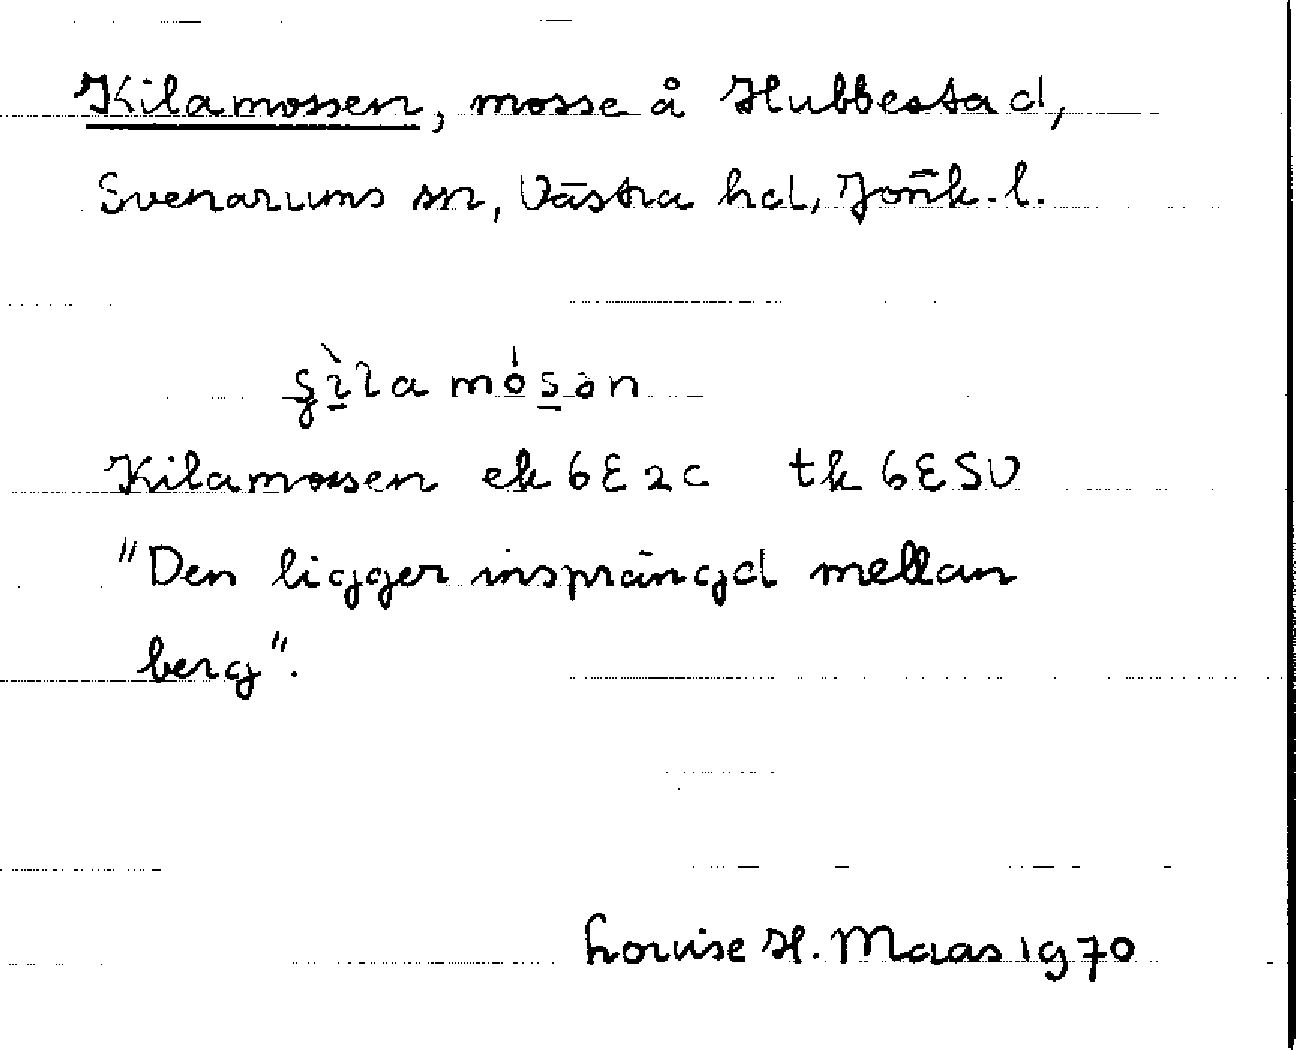 Kilamossen, mosse å Hubbestad,
Svenarums sn, Västra hd, Jönk. l.
Kilamossen ek 6E2c tk 6ESV
"Den ligger insprängd mellan
berg".
Louise H. Maas 1970